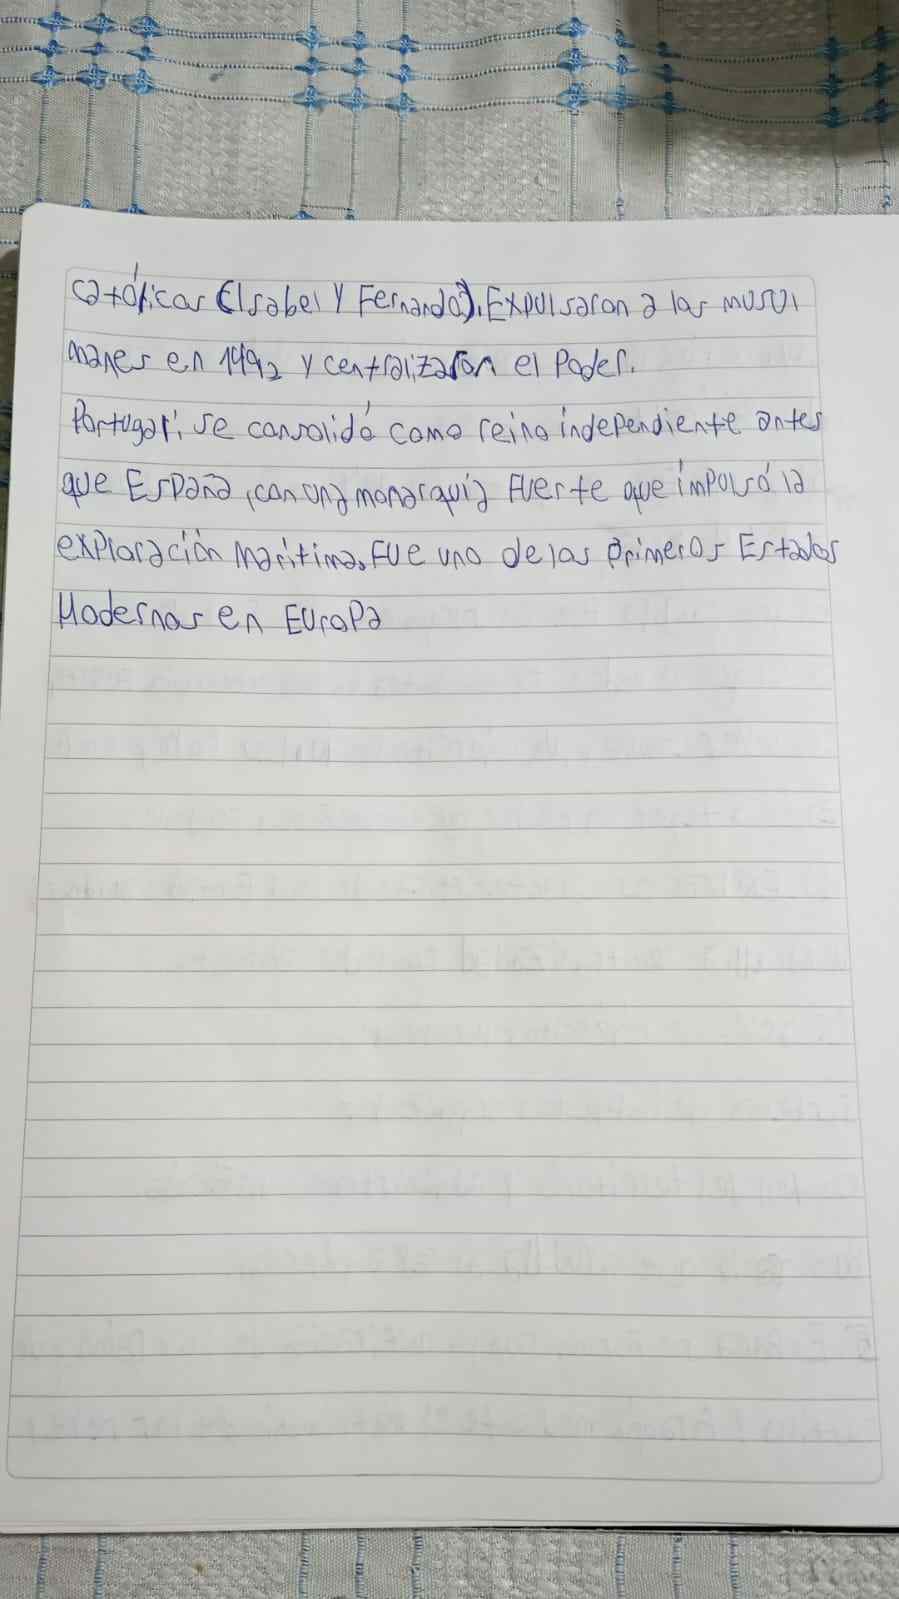 católicos (Isabel y Fernando). Expulsaron a los musul
manes en 1492 y centralizaron el Poder.
Portugal: se consolidó como reino independiente antes
que España, con una monarquía fuerte que impulsó la
exploración marítima. Fue uno de los primeros Estados
Modernos en Europa